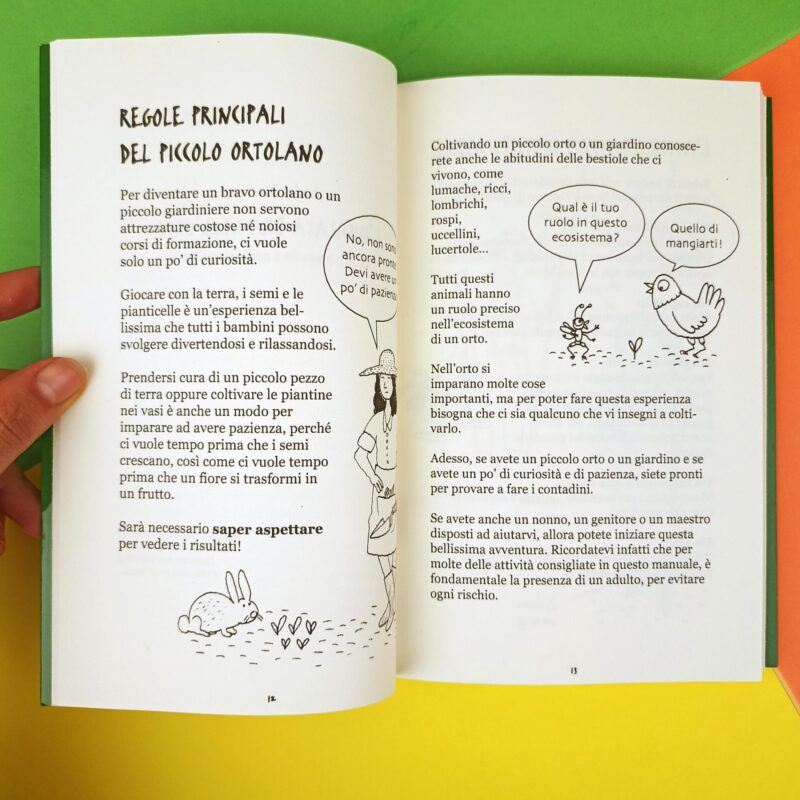 REGOLE PRINCIPALI
DEL PICCOLO ORTOLANO
Per diventare un bravo ortolano o un
piccolo giardiniere non servono
attrezzature costose né noiosi
corsi di formazione, ci vuole
solo un po' di curiosità.
Giocare con la terra, i semi e le
pianticelle è un'esperienza bel-
lissima che tutti i bambini possono
svolgere divertendosi e rilassandosi.
Prendersi cura di un piccolo pezzo
di terra oppure coltivare le piantine
nei vasi è anche un modo per
imparare ad avere pazienza, perché
ci vuole tempo prima che i semi
crescano, così come ci vuole tempo
prima che un fiore si trasformi in
un frutto.
Sarà necessario saper aspettare
per vedere i risultati!
No, non sono
ancora pronte.
Devi avere un
po' di pazienza
12
Coltivando un piccolo orto o un giardino conosce-
rete anche le abitudini delle bestiole che ci
vivono, come
lumache, ricci,
lombrichi,
rospi,
uccellini,
lucertole...
Qual è il tuo
ruolo in questo
ecosistema?
Quello di
mangiarti!
Tutti questi
animali hanno
un ruolo preciso
nell'ecosistema
di un orto.
Nell'orto si
imparano molte cose
importanti, ma per poter fare questa esperienza
bisogna che ci sia qualcuno che vi insegni a colti-
varlo.
Adesso, se avete un piccolo orto o un giardino e se
avete un po' di curiosità e di pazienza, siete pronti
per provare a fare i contadini.
Se avete anche un nonno, un genitore o un maestro
disposti ad aiutarvi, allora potete iniziare questa
bellissima avventura. Ricordatevi infatti che per
molte delle attività consigliate in questo manuale, è
fondamentale la presenza di un adulto, per evitare
ogni rischio.
13